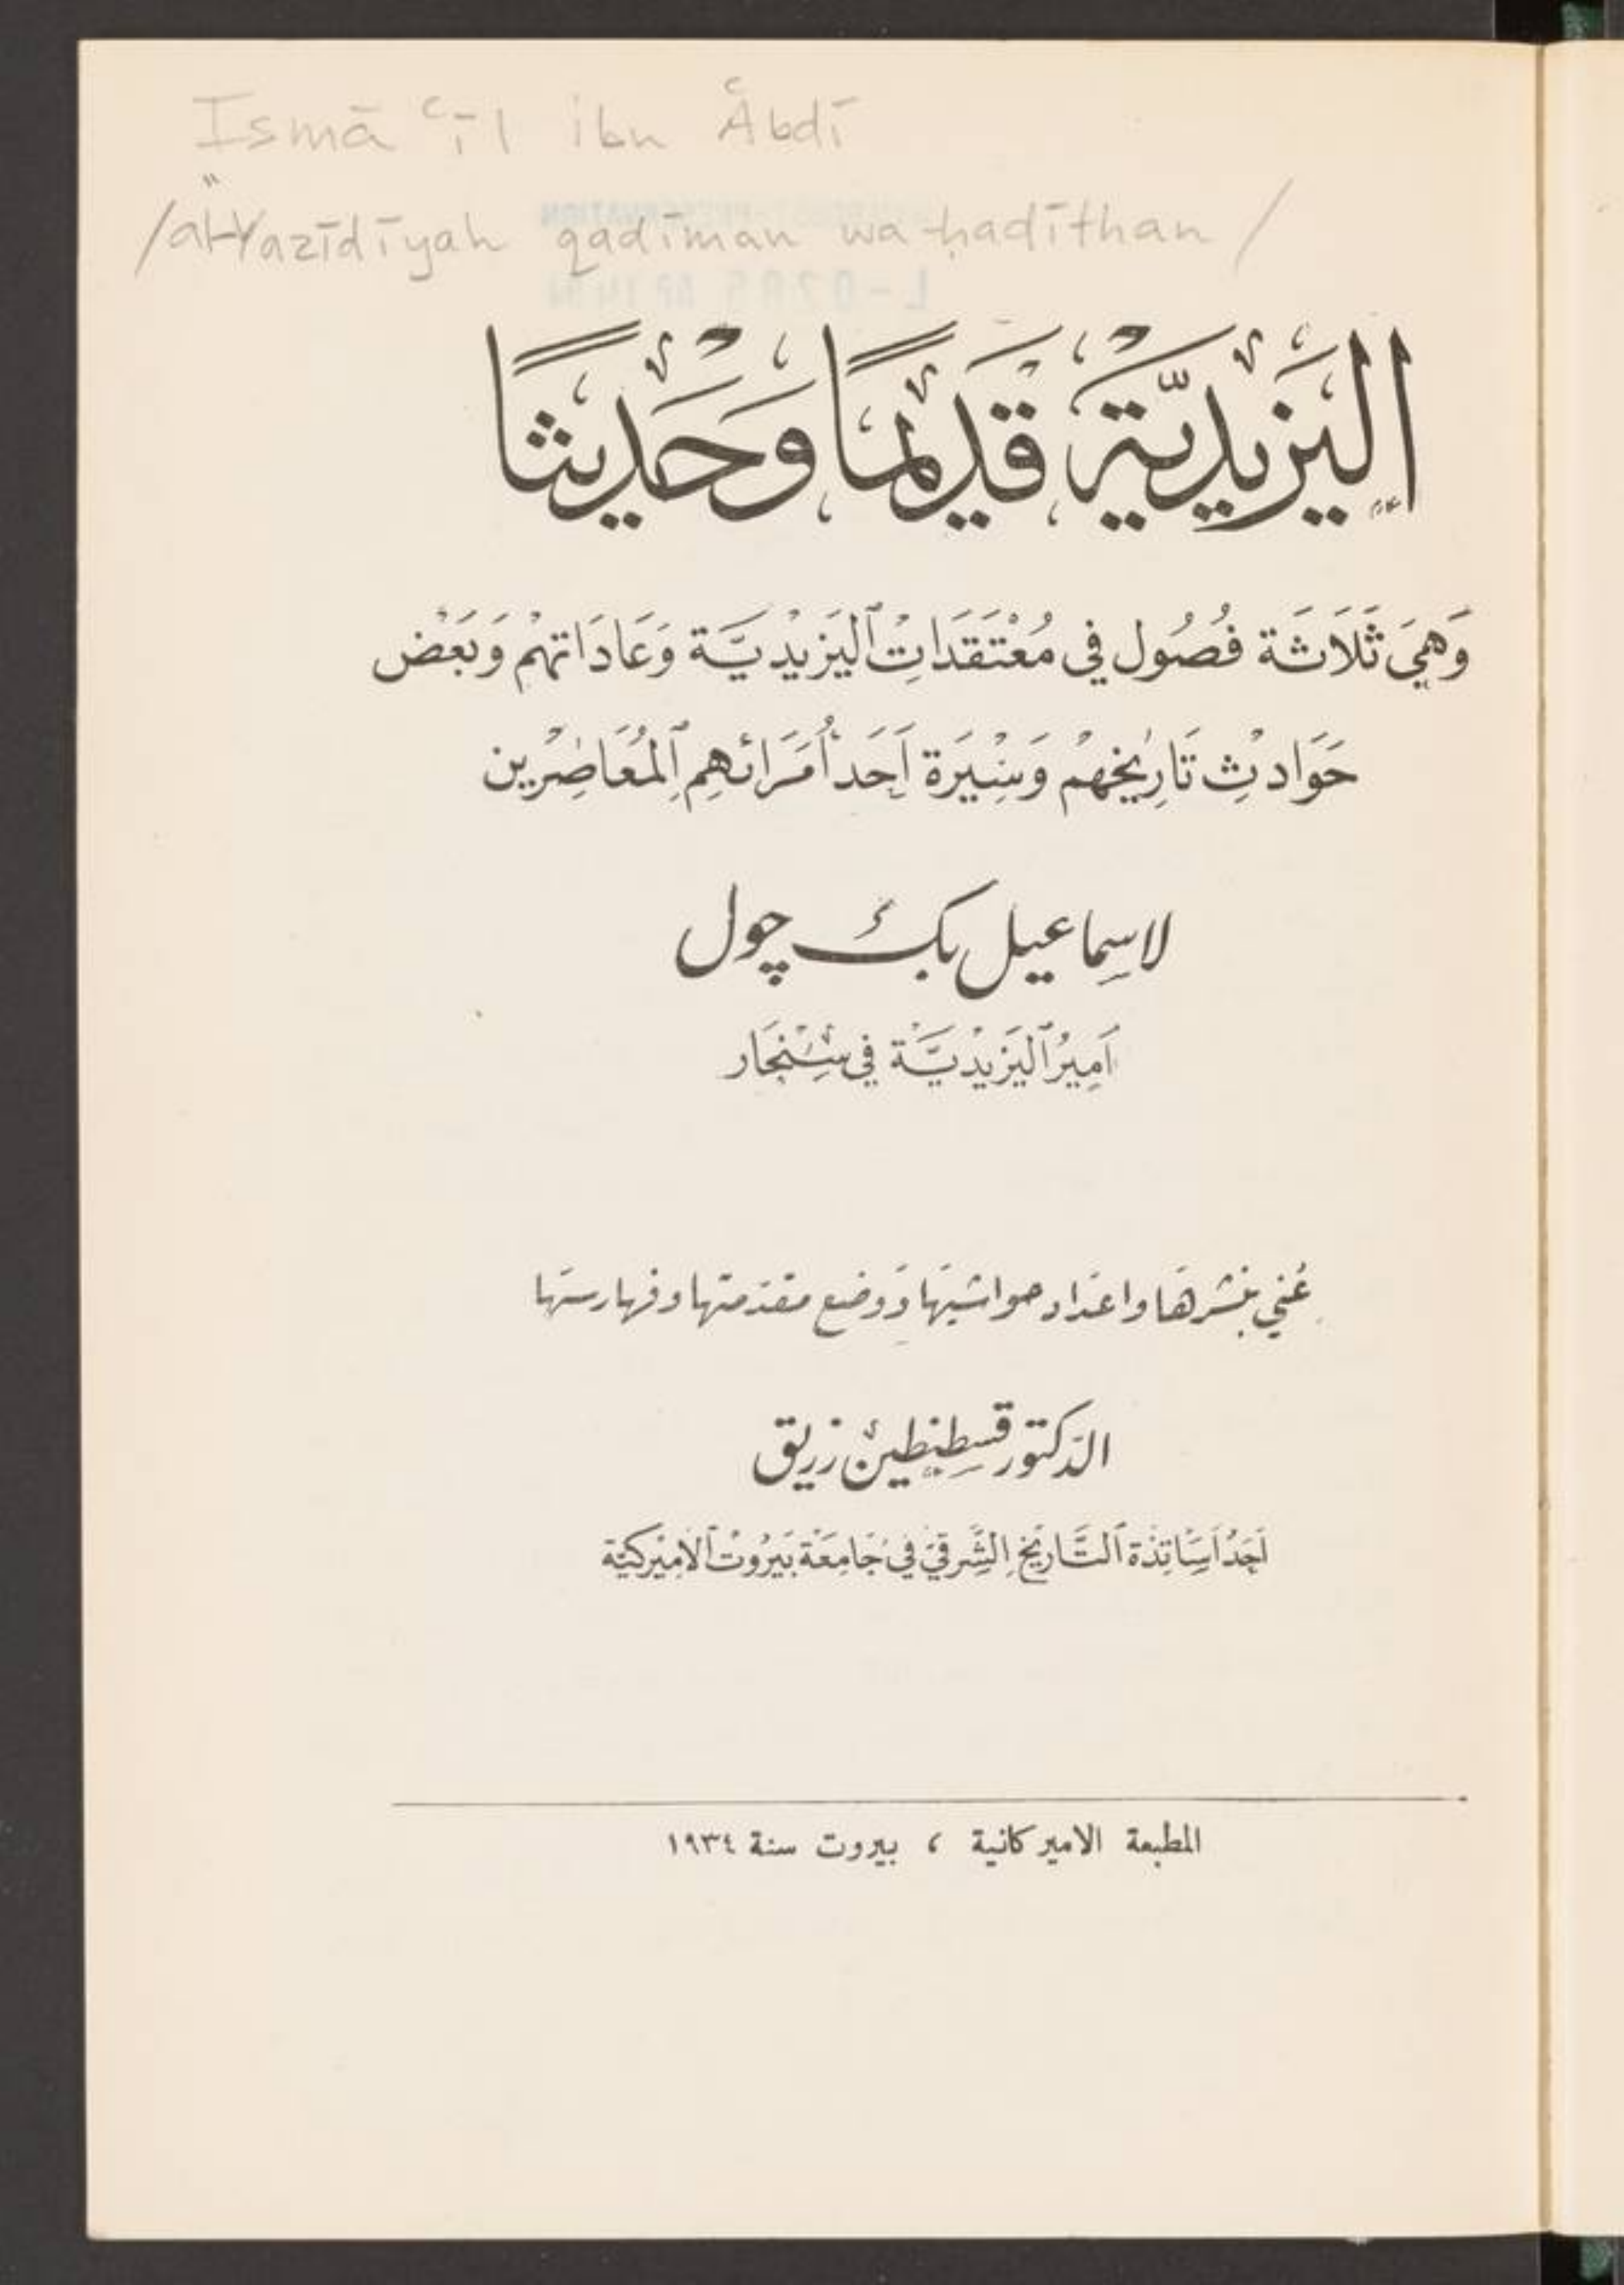 Ismāʿīl ibn ʿAbdī
/al-Yazīdīyah qadīman wa-ḥadīthan/
اليَزيديّة قَديمًا وَحَديثًا
وَهِيَ ثَلَاثَة فُصُول في مُعْتَقَدَاتِ ٱليَزيْديَّة وَعَادَاتهِمْ وَبَعْض
حَوَادثِ تَارِيخهِمْ وَسِيْرَة اَحَد أُمَرَائهِم ٱلمُعَاصِرْين
لاسماعيل بك چول
اَمِيرُ ٱليَزيْديَّة في سِنْجَار
عُني بنشرهَا واعدَاد حواشيهَا وَوضع مقدّمتها وفهارسها
الدّكتور قسطنطين زريق
اَحَدُ اَسَاتِذَة ٱلتَّاريخ الشَّرقيّ في جَامِعَة بَيرُوتْ ٱلاميْركيَّة
المطبعة الاميركانية ، بيروت سنة ١٩٣٤